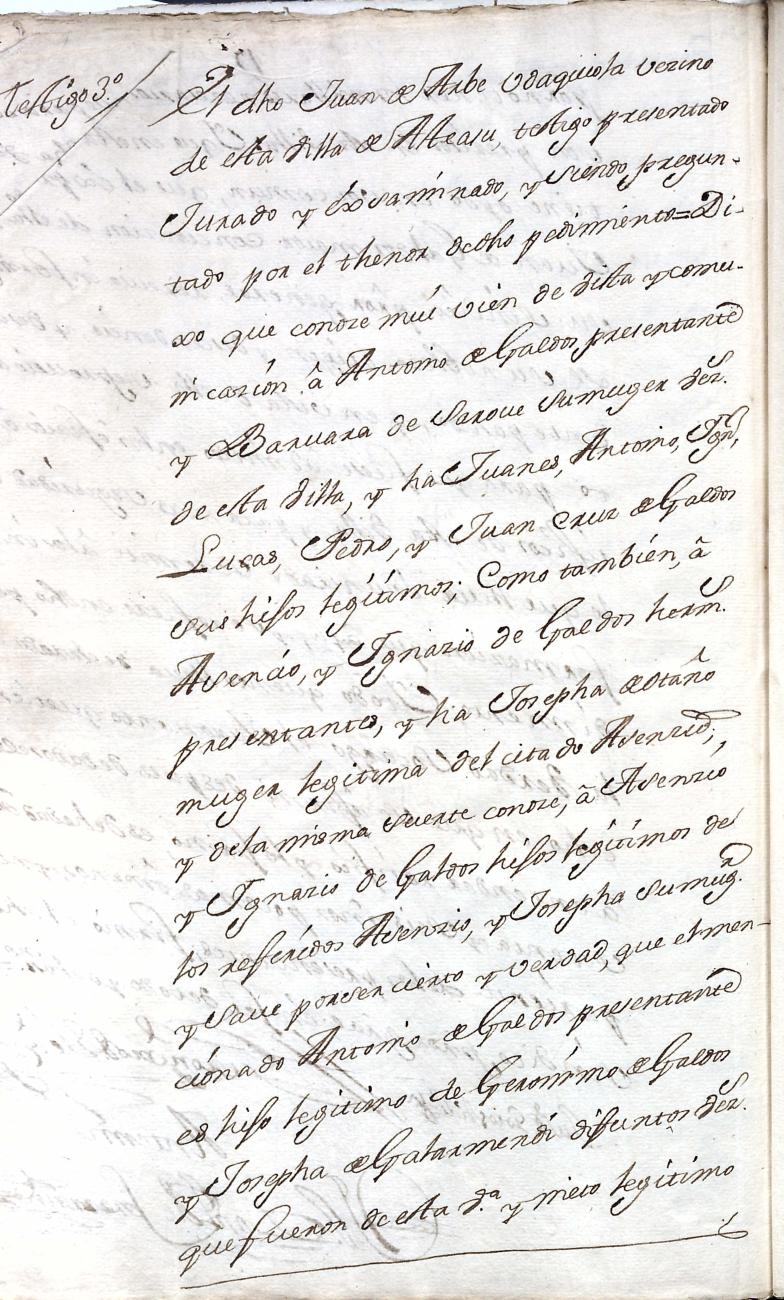 Testigo 3.º
El dho Juan de Arbe Udaquiola vezino
de esta Villa de Ateasu, testigo presentado
Jurado y exsaminado, y siendo pregun-
tado por el thenor de dho pedimiento = Di-
xo que conoze mui vien de vista y comu-
nicazion â Antonio de Galdos presentante
y Barvara de Saroue su muger vez.s
de esta Villa, y ha Juanes, Antonio, Ign.o,
Lucas, Pedro, y Juan Cruz de Galdos
sus hijos legitimos; Como tambien, â
Asencio, y Ygnazio de Galdos herm.s
presentantes, y ha Josepha de otaño
muger legitima del citado Asenzio,
y dela misma suerte conoze, â Asenzio
y Ygnazio de Galdos hijos legitimos de
los referidos Asenzio, y Josepha su mug.r
y save por ser cierto y verdad, que el men-
cionado Antonio de Galdos presentante
es hijo legitimo de Geronimo de Galdos
y Josepha de Galarmendi difuntos vez.s
que fueron de esta v.a y nieto legitimo